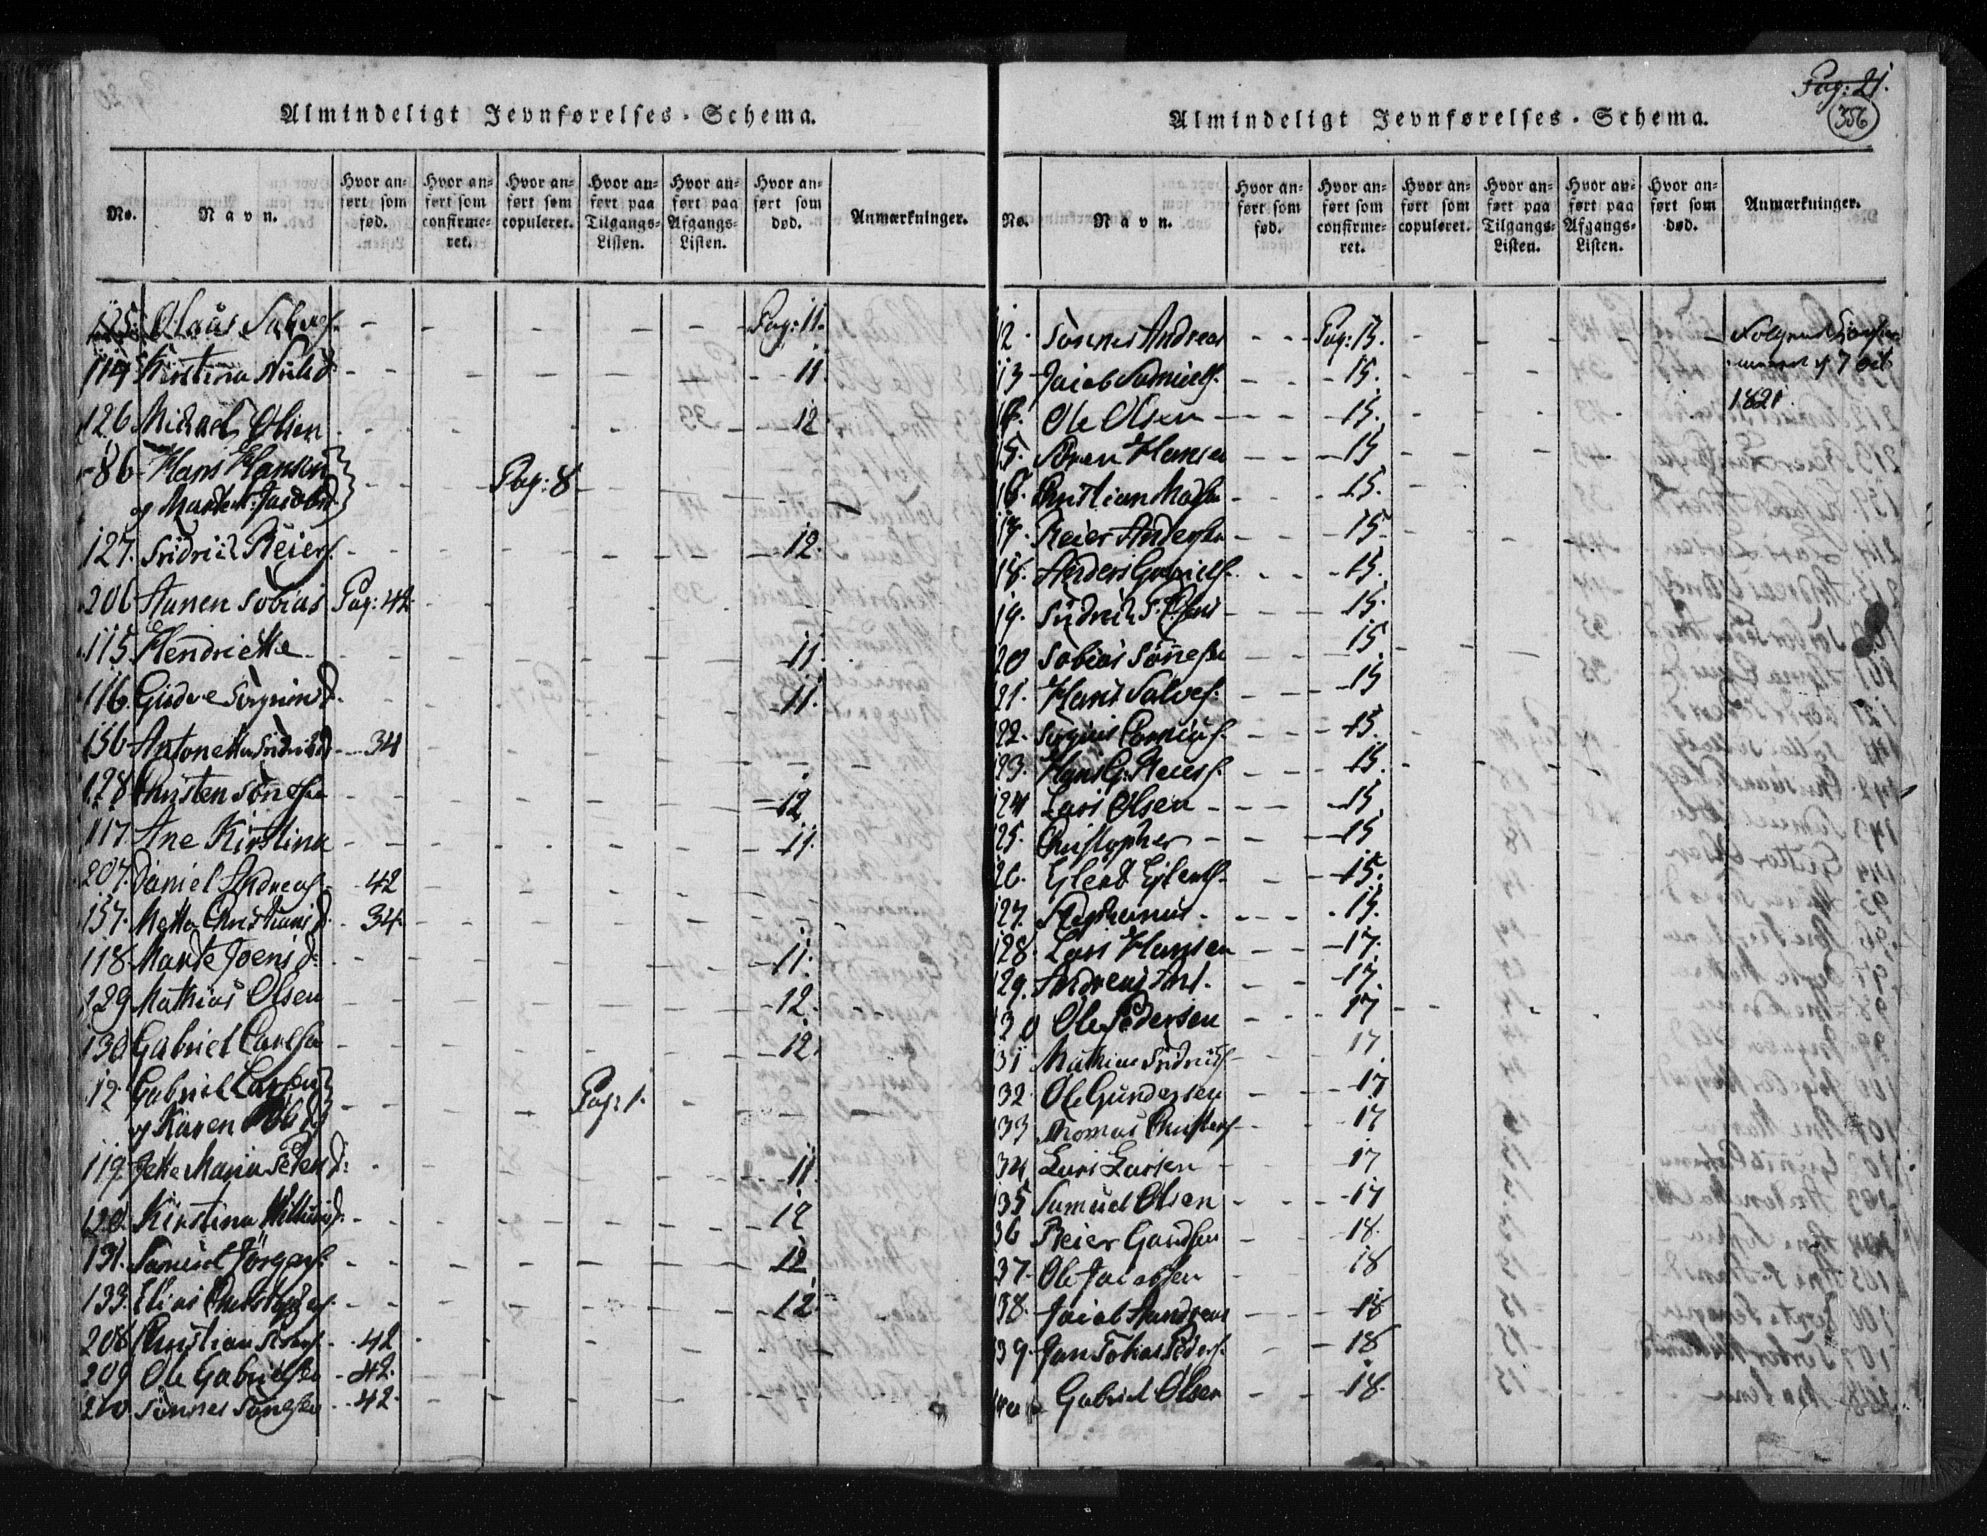 Almindeligt Jevnførelses-Schema.
No.
Navn.
Hvor anført som fød.
Hvor anført som confirmeret.
Hvor anført som copuleret.
Hvor anført paa Tilgangs-Listen.
Hvor anført paa Afgangs-Listen.
Hvor anført som død.
Anmærkninger.
125. Olaus Salves. Pag: 11.
114 Kirstina Nilsd 11.
126 Michael Olsen 12
86 Hans Hansen
og Marte M: Jacobsd Pag: 8
127. Fridrich Reiers. 12.
206 Hanen Tobias Pag: 42
115 Hendriette 11.
116. Gudve Torgrims d. 11.
156 Antonette Fridrichsd 34
128 Christen Tönnesen 12
117. Ane Kirstina 11.
207. Daniel Andreas 42
157. Mette Christians d. 34
118. Marte Joens d: 11.
129 Mathias Olsen 12.
130 Gabriel Carlsen 12.
12. Gabriel Larsen
og Karen Pag: 1.
119. Jette Maria Peters d: 11.
120. Kirstina Willumsd: 12
131. Samuel Jörgens. 12
133. Elias Christophers. 12.
208 Christian 42
209 Ole Gabrielsen 42.
210. Tönnes Tönnesen 42.
Pag: 21.
356
Almindeligt Jevnførelses-Schema.
No.
Navn.
Hvor anført som fød.
Hvor anført som confirmeret.
Hvor anført som copuleret.
Hvor anført paa Tilgangs-Listen.
Hvor anført paa Afgangs-Listen.
Hvor anført som død.
Anmærkninger.
12. Tönnes Andreas Pag: 15.
7 Oct
1821.
13 Jacob Samuels. 15.
14. Ole Olsen 15.
15. Sören Hansen 15
16. Christian Madsen 15.
17. Reier Andersen 15
18. Anders Gabriels. 15.
19. Fridrich T: Olsen 15.
20 Tobias Tönnesen 15
21. Hans Salves. 15
22. Torgius Cornius. 15.
23. Hans G: Reiers. 15.
24 Lars Olsen 15
25. Christopher 15
26. Eilert Eilerts. 15.
27. Stephanus 15.
28. Lars Hansen 17.
29. Andreas Ant. 17.
30 Ole Pedersen 17
31 Mathias Fridrichs. 17
32. Ole Gundersen 17
33 Thomas Christens. 17
34 Lars Larsen 17
35 Samuel Olsen 17
36 Reier Gundsen 18.
37. Ole Jacobsen 18
38. Jacob Andreas 18
39. Jan Tobias Peders. 18
40 Gabriel Olsen 18.